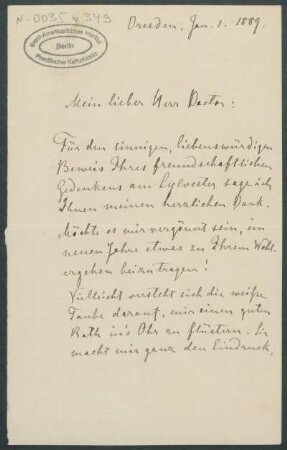 N-0035 s 343
Dresden, Jan. 1. 1889.
Ibero-Amerikanisches Institut
Berlin
Preußischer Kulturbesitz
Mein lieber Herr Doctor:
Für den sinnigen, liebenswürdigen
Beweis Ihres freundschaftlichen
Gedenkens am Sylvester sage ich
Ihnen meinen herzlichen Dank.
Möchte es mir vergönnt sein, im
neuen Jahre etwas zu Ihrem Wohl-
ergehen beizutragen!
Vielleicht versteht sich die weiße
Taube darauf, mir einen guten
Rath in's Ohr zu flüstern. Sie
macht mir ganz den Eindruck,